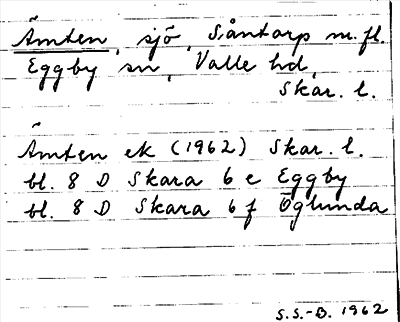 Ämten, sjö, Såntorp m.fl.
Eggby sn, Valle hd,
Skar. l.
Ämten ek (1962) Skar. l.
bl. 8 D Skara 6 e Eggby
bl. 8 D Skara 6 f Öglunda
S.S.-B. 1962